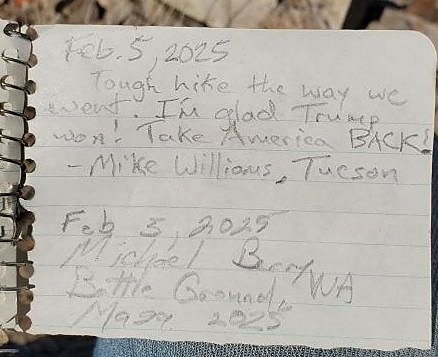 Feb. 5, 2025
Tough hike the way we
went. I'm glad Trump
won! Take America BACK!
- Mike Williams, Tucson
Feb 5, 2025
Michael Berry
Battle Ground, WA
2025